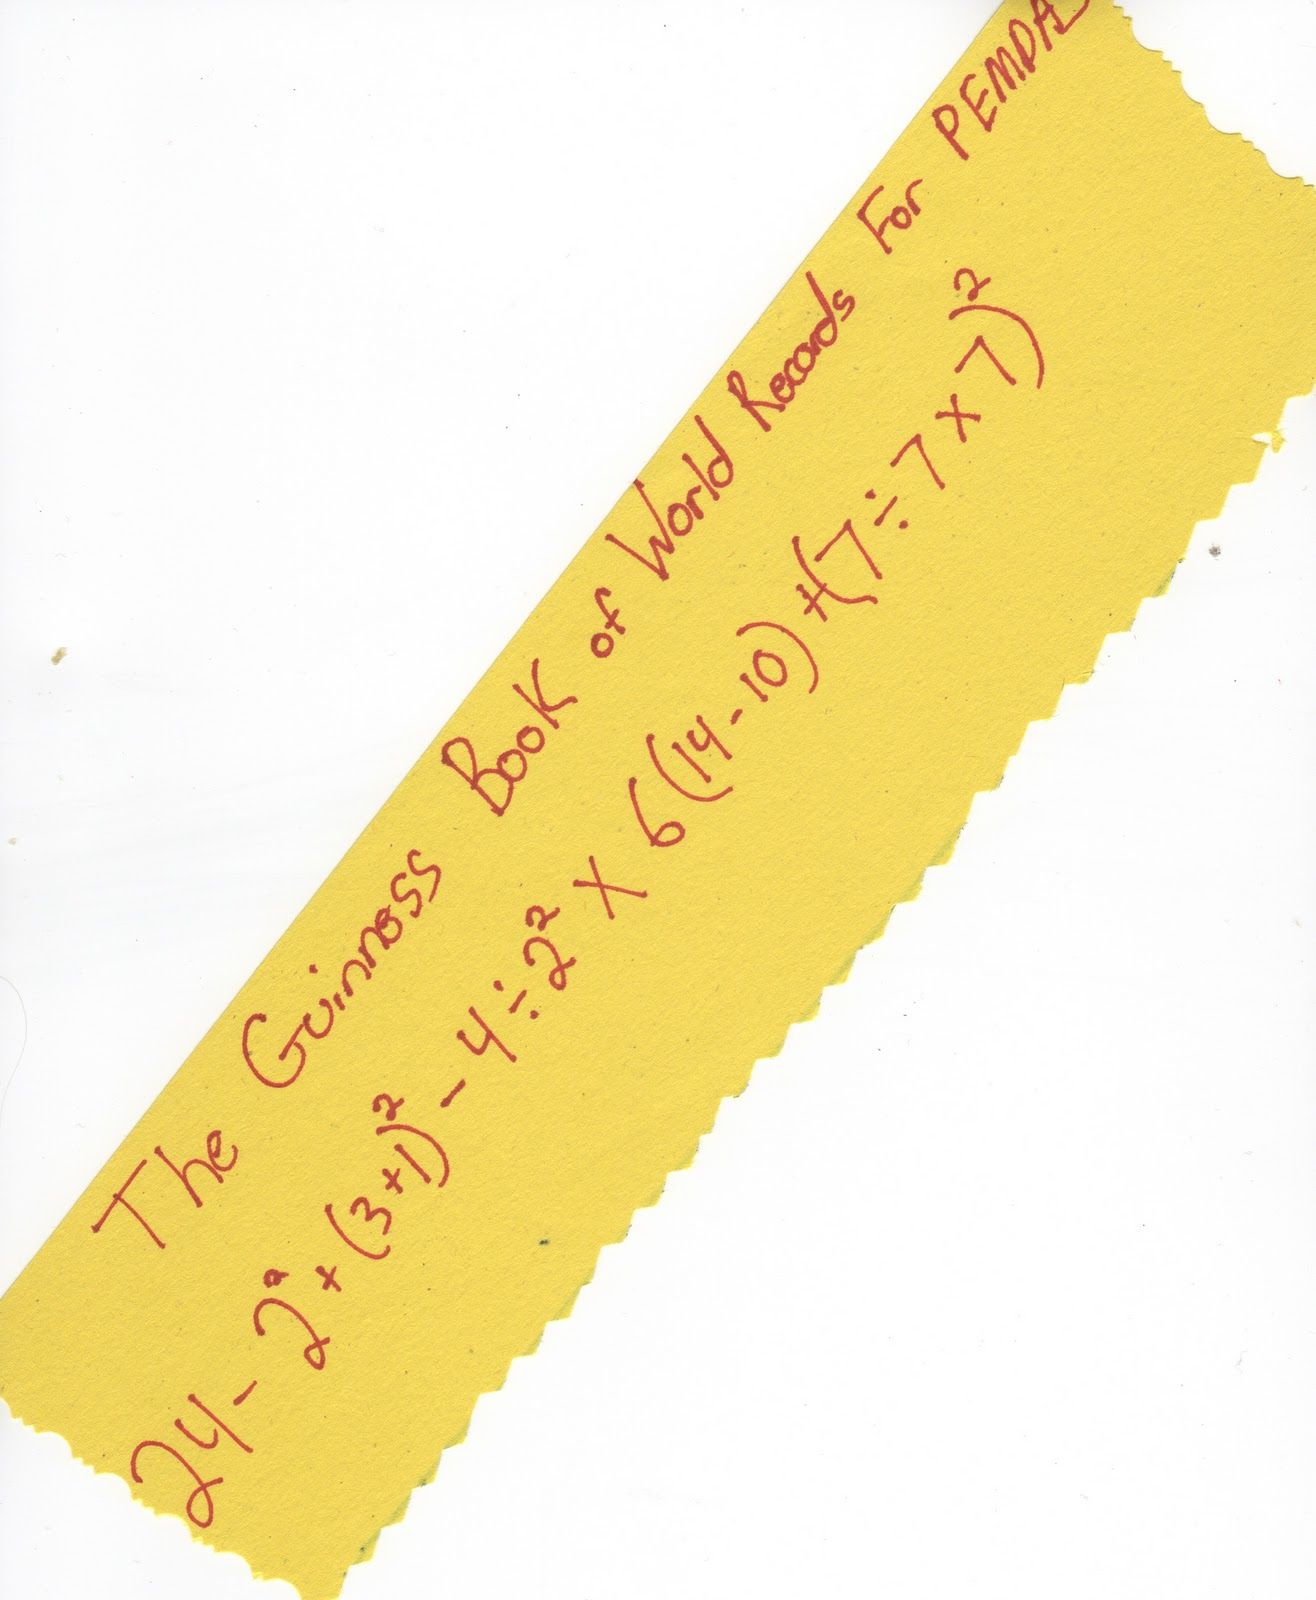 The Guinness Book of World Records For PEMDA
24 - 2² + (3+1)² - 4 ÷ 2² × 6(14-10) + (7 ÷ 7 × 7)²